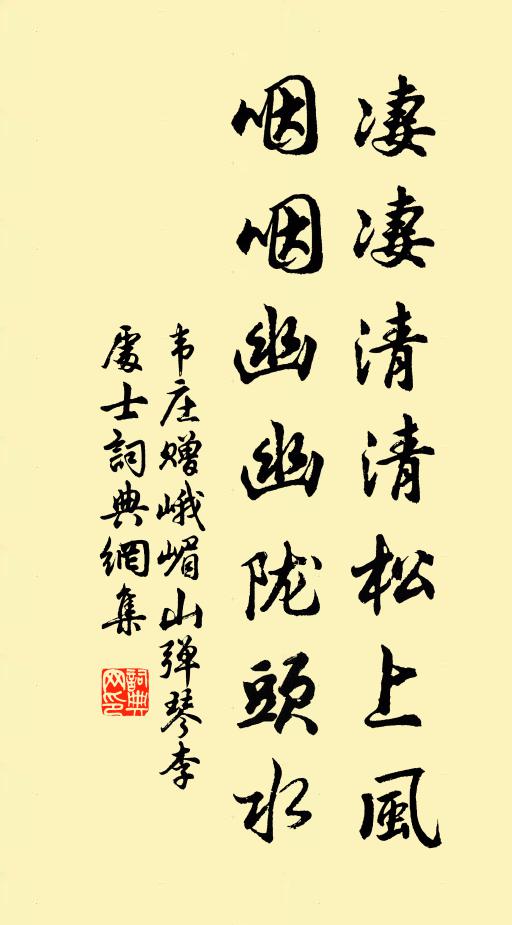 凄凄清清松上風
咽咽幽幽陇頭水
韦庄赠峨嵋山弹琴李
處士詞典網集
詞典网印